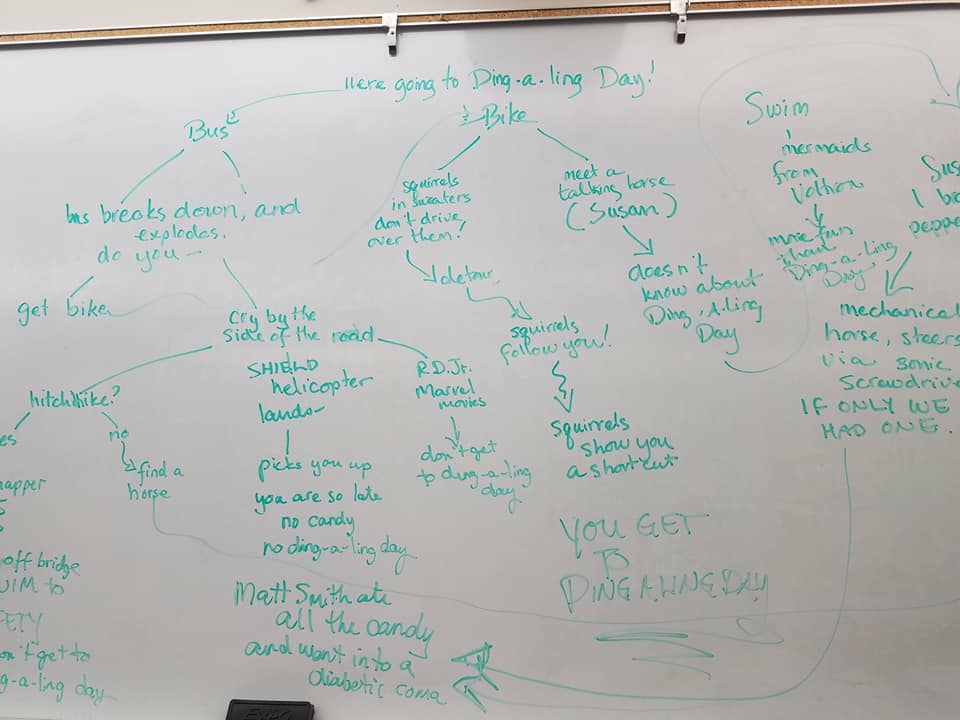 We're going to Ding-a-ling Day!
Bus
bus breaks down, and
explodes.
do you —
get bike
cry by the
side of the road
hitchhike?
es
no
find a
horse
napper
off bridge
UIM to
FETY
on't get to
g-a-ling day
SHIELD
helicopter
lands
picks you up
you are so late
no candy
no ding-a-ling day
R.D.Jr.
Marvel
movies
don't get
to ding-a-ling
day
Matt Smith ate
all the candy
and went into a
diabetic coma
Bike
squirrels
in sweaters
don't drive
over them!
detour
squirrels
follow you!
squirrels
show you
a shortcut
YOU GET
TO
DING A LING DAY
meet a
talking horse
(Susan)
doesn't
know about
Ding-A-ling
Day
Swim
mermaids
from
more fun
than
Ding-a-Ling
Day
Sus
1 b
peppe
mechanical
horse, steers
via sonic
screwdrive
IF ONLY WE
HAD ONE.
EXPO